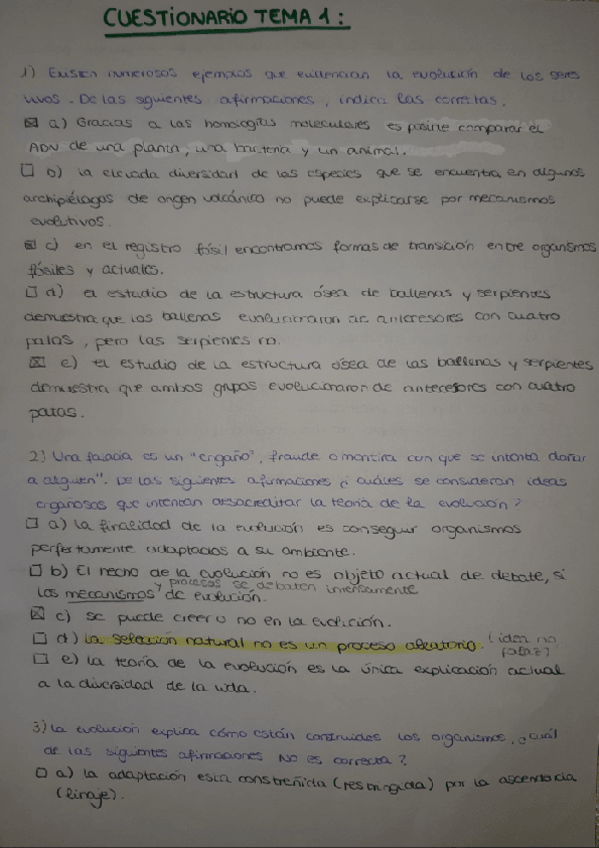 CUESTIONARIO TEMA 1:
1) Existen numerosos ejemplos que evidencian la evolución de los seres
vivos. De las siguientes afirmaciones, indica las correctas.
☒ a) Gracias a las homologías moleculares es posible comparar el
ADN de una planta, una bacteria y un animal.
☐ b) la elevada diversidad de las especies que se encuentra en algunos
archipiélagos de origen volcánico no puede explicarse por mecanismos
evolutivos.
☒ c) en el registro fósil encontramos formas de transición entre organismos
fósiles y actuales.
☐ d) el estudio de la estructura ósea de ballenas y serpientes
demuestra que las ballenas evolucionaron de antecesores con cuatro
patas, pero las serpientes no.
☒ e) el estudio de la estructura ósea de las ballenas y serpientes
demuestra que ambos grupos evolucionaron de antecesores con cuatro
patas.
2) Una falacia es un "engaño", fraude o mentira con que se intenta dañar
a alguien". De las siguientes afirmaciones ¿ cuáles se consideran ideas
engañosas que intentan desacreditar la teoría de la evolución?
☐ a) la finalidad de la evolución es conseguir organismos
perfectamente adaptados a su ambiente.
☐ b) El hecho de la evolución no es objeto actual de debate, si
los mecanismos y procesos se debaten intensamente de evolución.
☒ c) se puede creer o no en la evolución.
☐ d) la selección natural no es un proceso aleatorio. (idea no falaz)
☐ e) la teoría de la evolución es la única explicación actual
a la diversidad de la vida.
3) la evolución explica cómo están construidos los organismos, ¿cuál
de las siguientes afirmaciones NO es correcta?
☐ a) la adaptación está constreñida (restringida) por la ascendencia
(linaje).